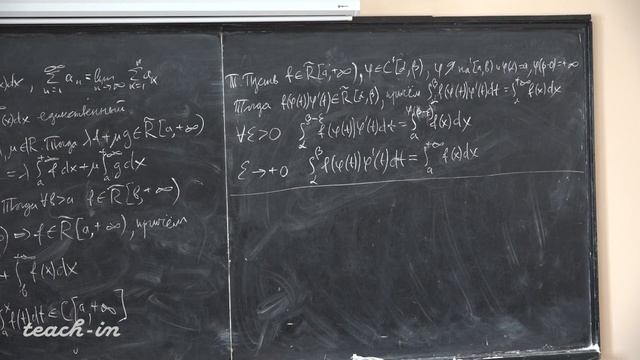 ∑_{n=1}^{∞} a_n = lim_{n→∞} ∑_{k=1}^{n} a_k
f(x)dx единственный.
, μ∈ℝ. Тогда λf+μg∈R̃[a,+∞)
= λ∫_a^{+∞} f dx + μ∫_a^{+∞} g dx
Тогда ∀b>a f∈R̃[b,+∞)
) ⇒ f∈R̃[a,+∞), причём
+ ∫_b^{+∞} f(x)dx
∫_a^x f(t)dt ∈ C[a,+∞]
Т. Пусть f∈R̃[a,+∞), φ∈C'[α,β), φ↗ на [α,β) и φ(α)=a, φ(β-0)=+∞
Тогда f(φ(t))φ'(t)∈R̃[α,β), причём ∫_α^β f(φ(t))φ'(t)dt = ∫_a^{+∞} f(x)dx
∀ε>0 ∫_α^{β-ε} f(φ(t))φ'(t)dt = ∫_a^{φ(β-ε)} f(x)dx
ε→+0 ∫_α^β f(φ(t))φ'(t)dt = ∫_a^{+∞} f(x)dx
teach-in